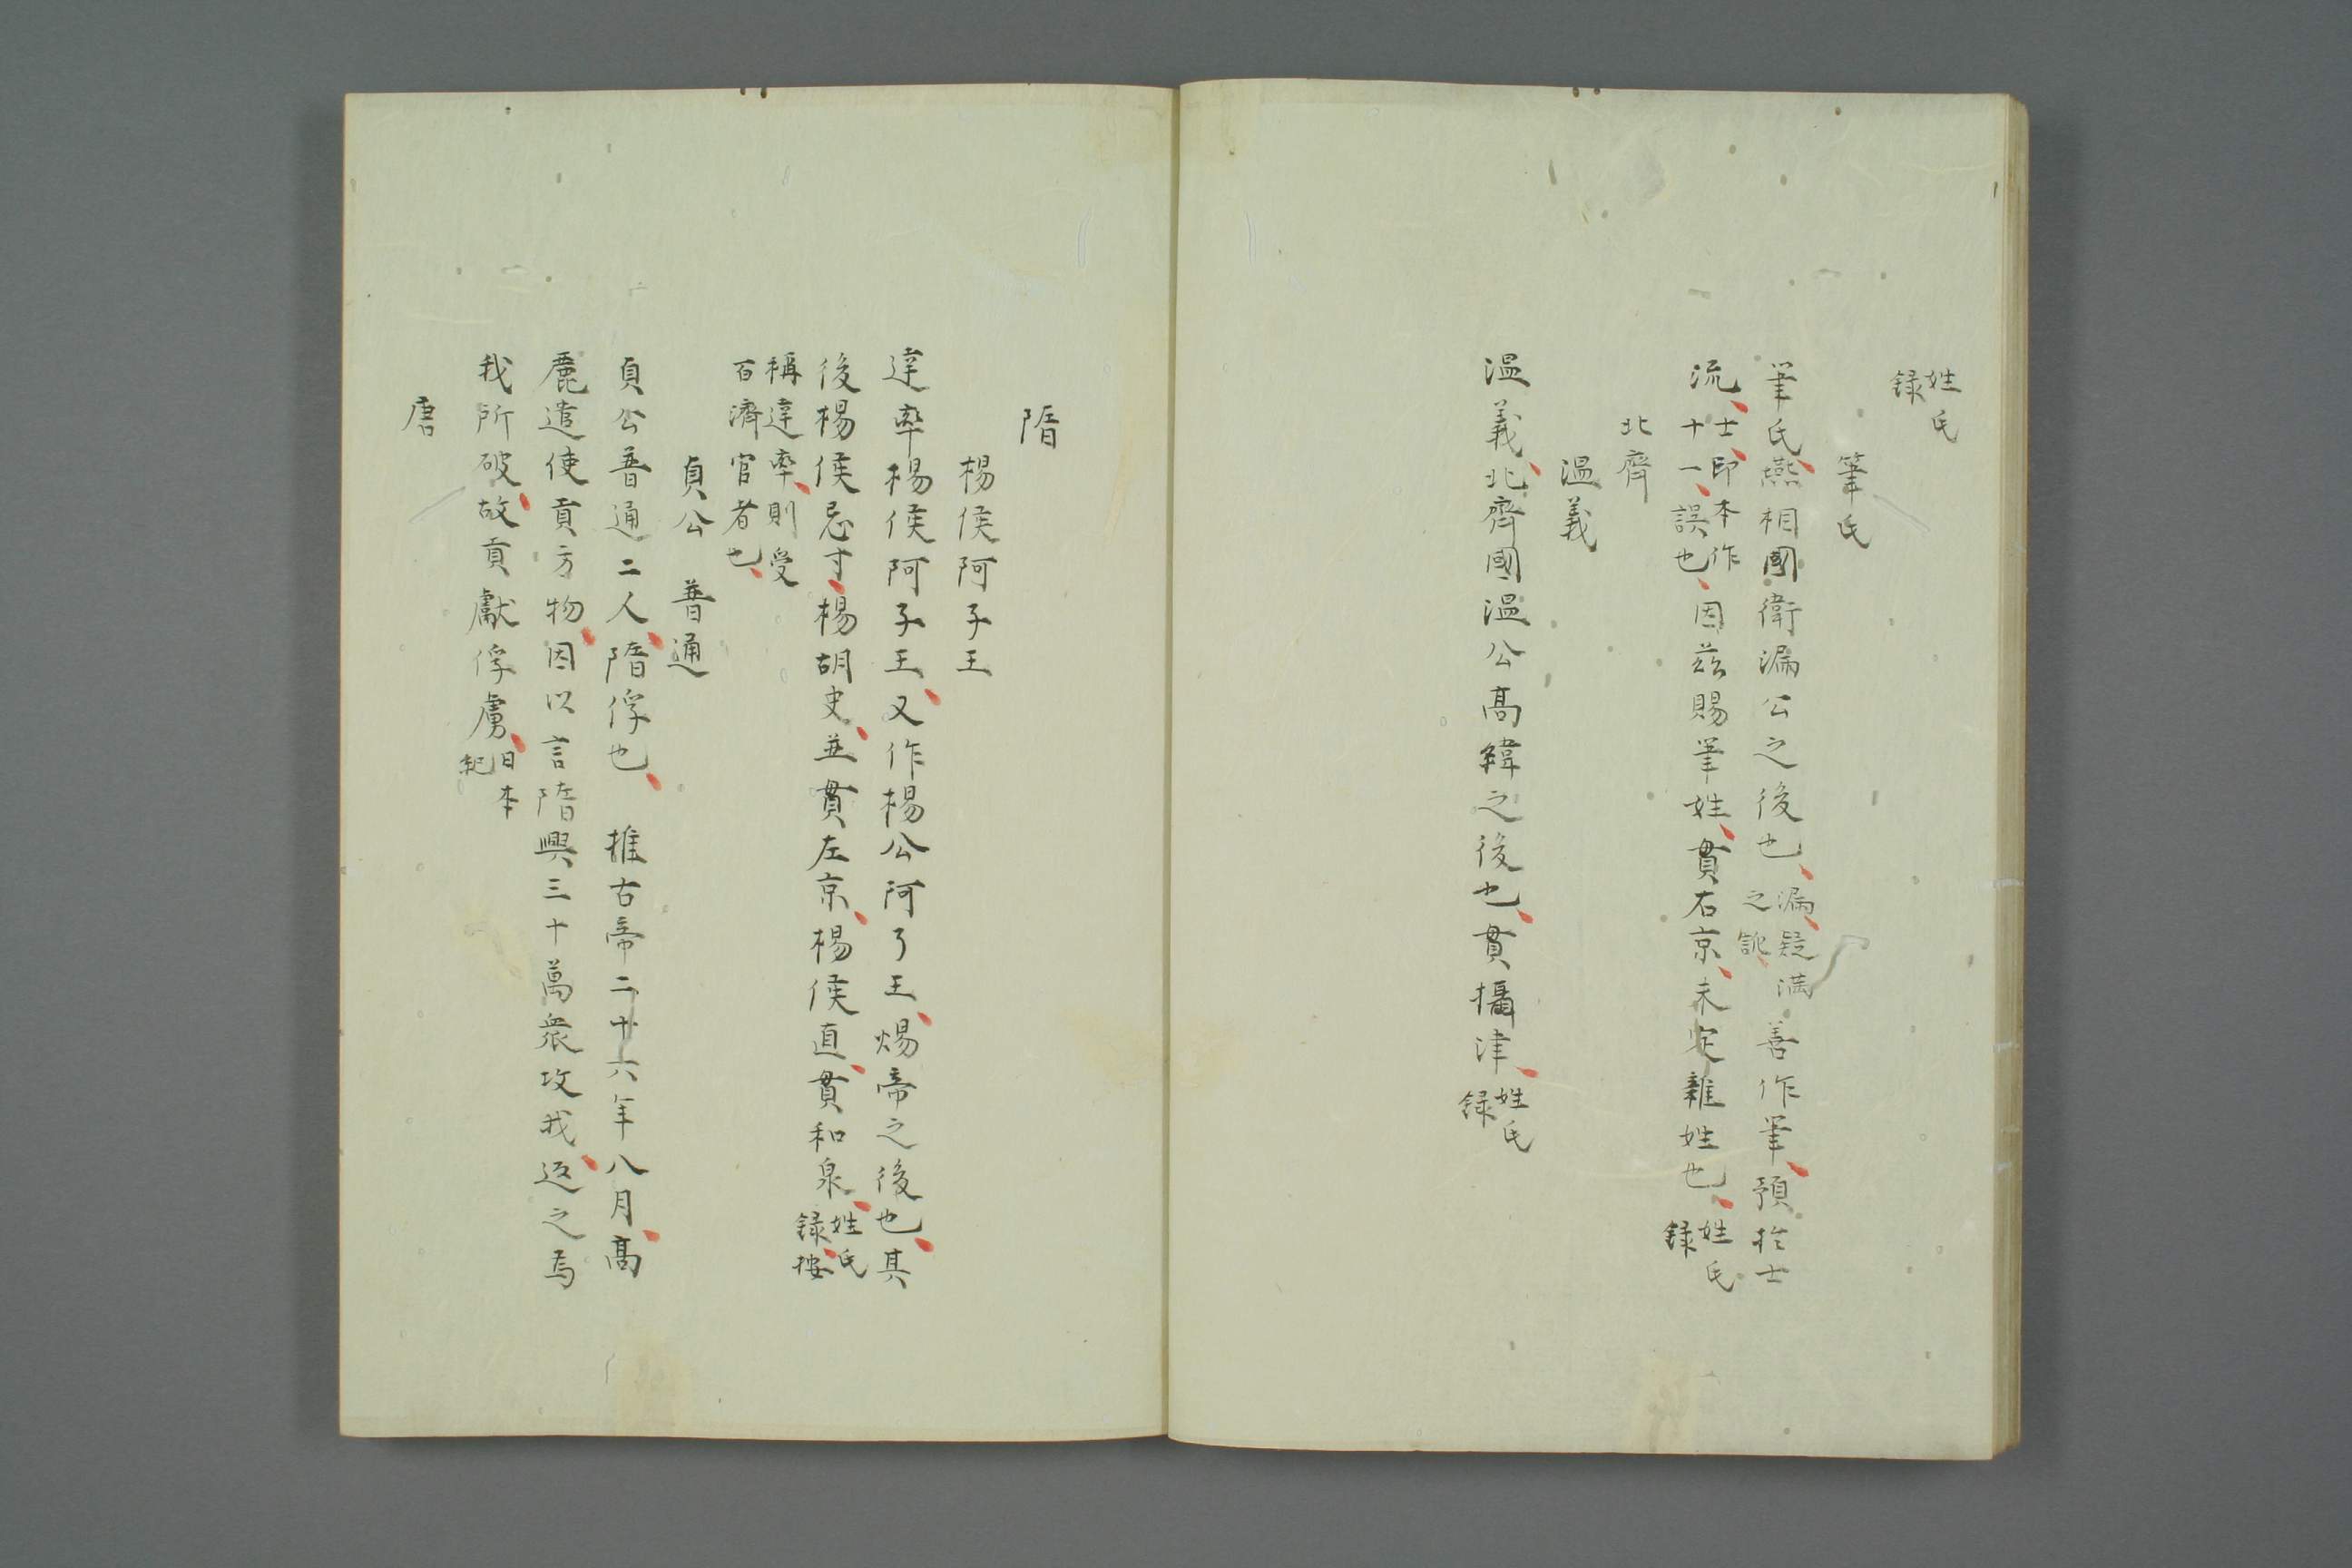 姓氏
録
筆氏
筆氏、燕相國衛漏公之後也、漏、疑満之訛善作筆、預於士
流、士、印本作十一、誤也、因茲賜筆姓、貫右京、未定雑姓也、姓氏録
北齊
温義
温義、北齊國温公高緯之後也、貫攝津、姓氏録
隋
楊侯阿子王
達率楊侯阿子王、又作楊公阿了王、煬帝之後也、其
後楊侯忌寸、楊胡史、並貫左京、楊侯直、貫和泉、姓氏録、按
稱達率、則受
百濟官者也、
貞公 普通
貞公普通二人、隋俘也、 推古帝二十六年八月、高
麗遣使貢方物、因以言隋興三十萬衆攻我、返之為
我所破、故貢獻俘虜、日本紀
唐